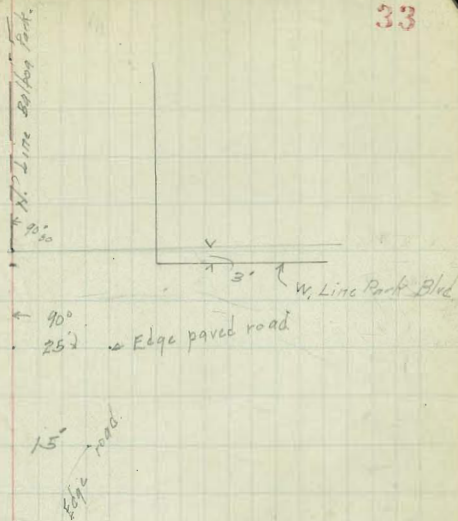 33
N. Line Balboa Park.
90°30
3°
W. Line Park Blvd
90°
25± Edge paved road
15°
Edge road